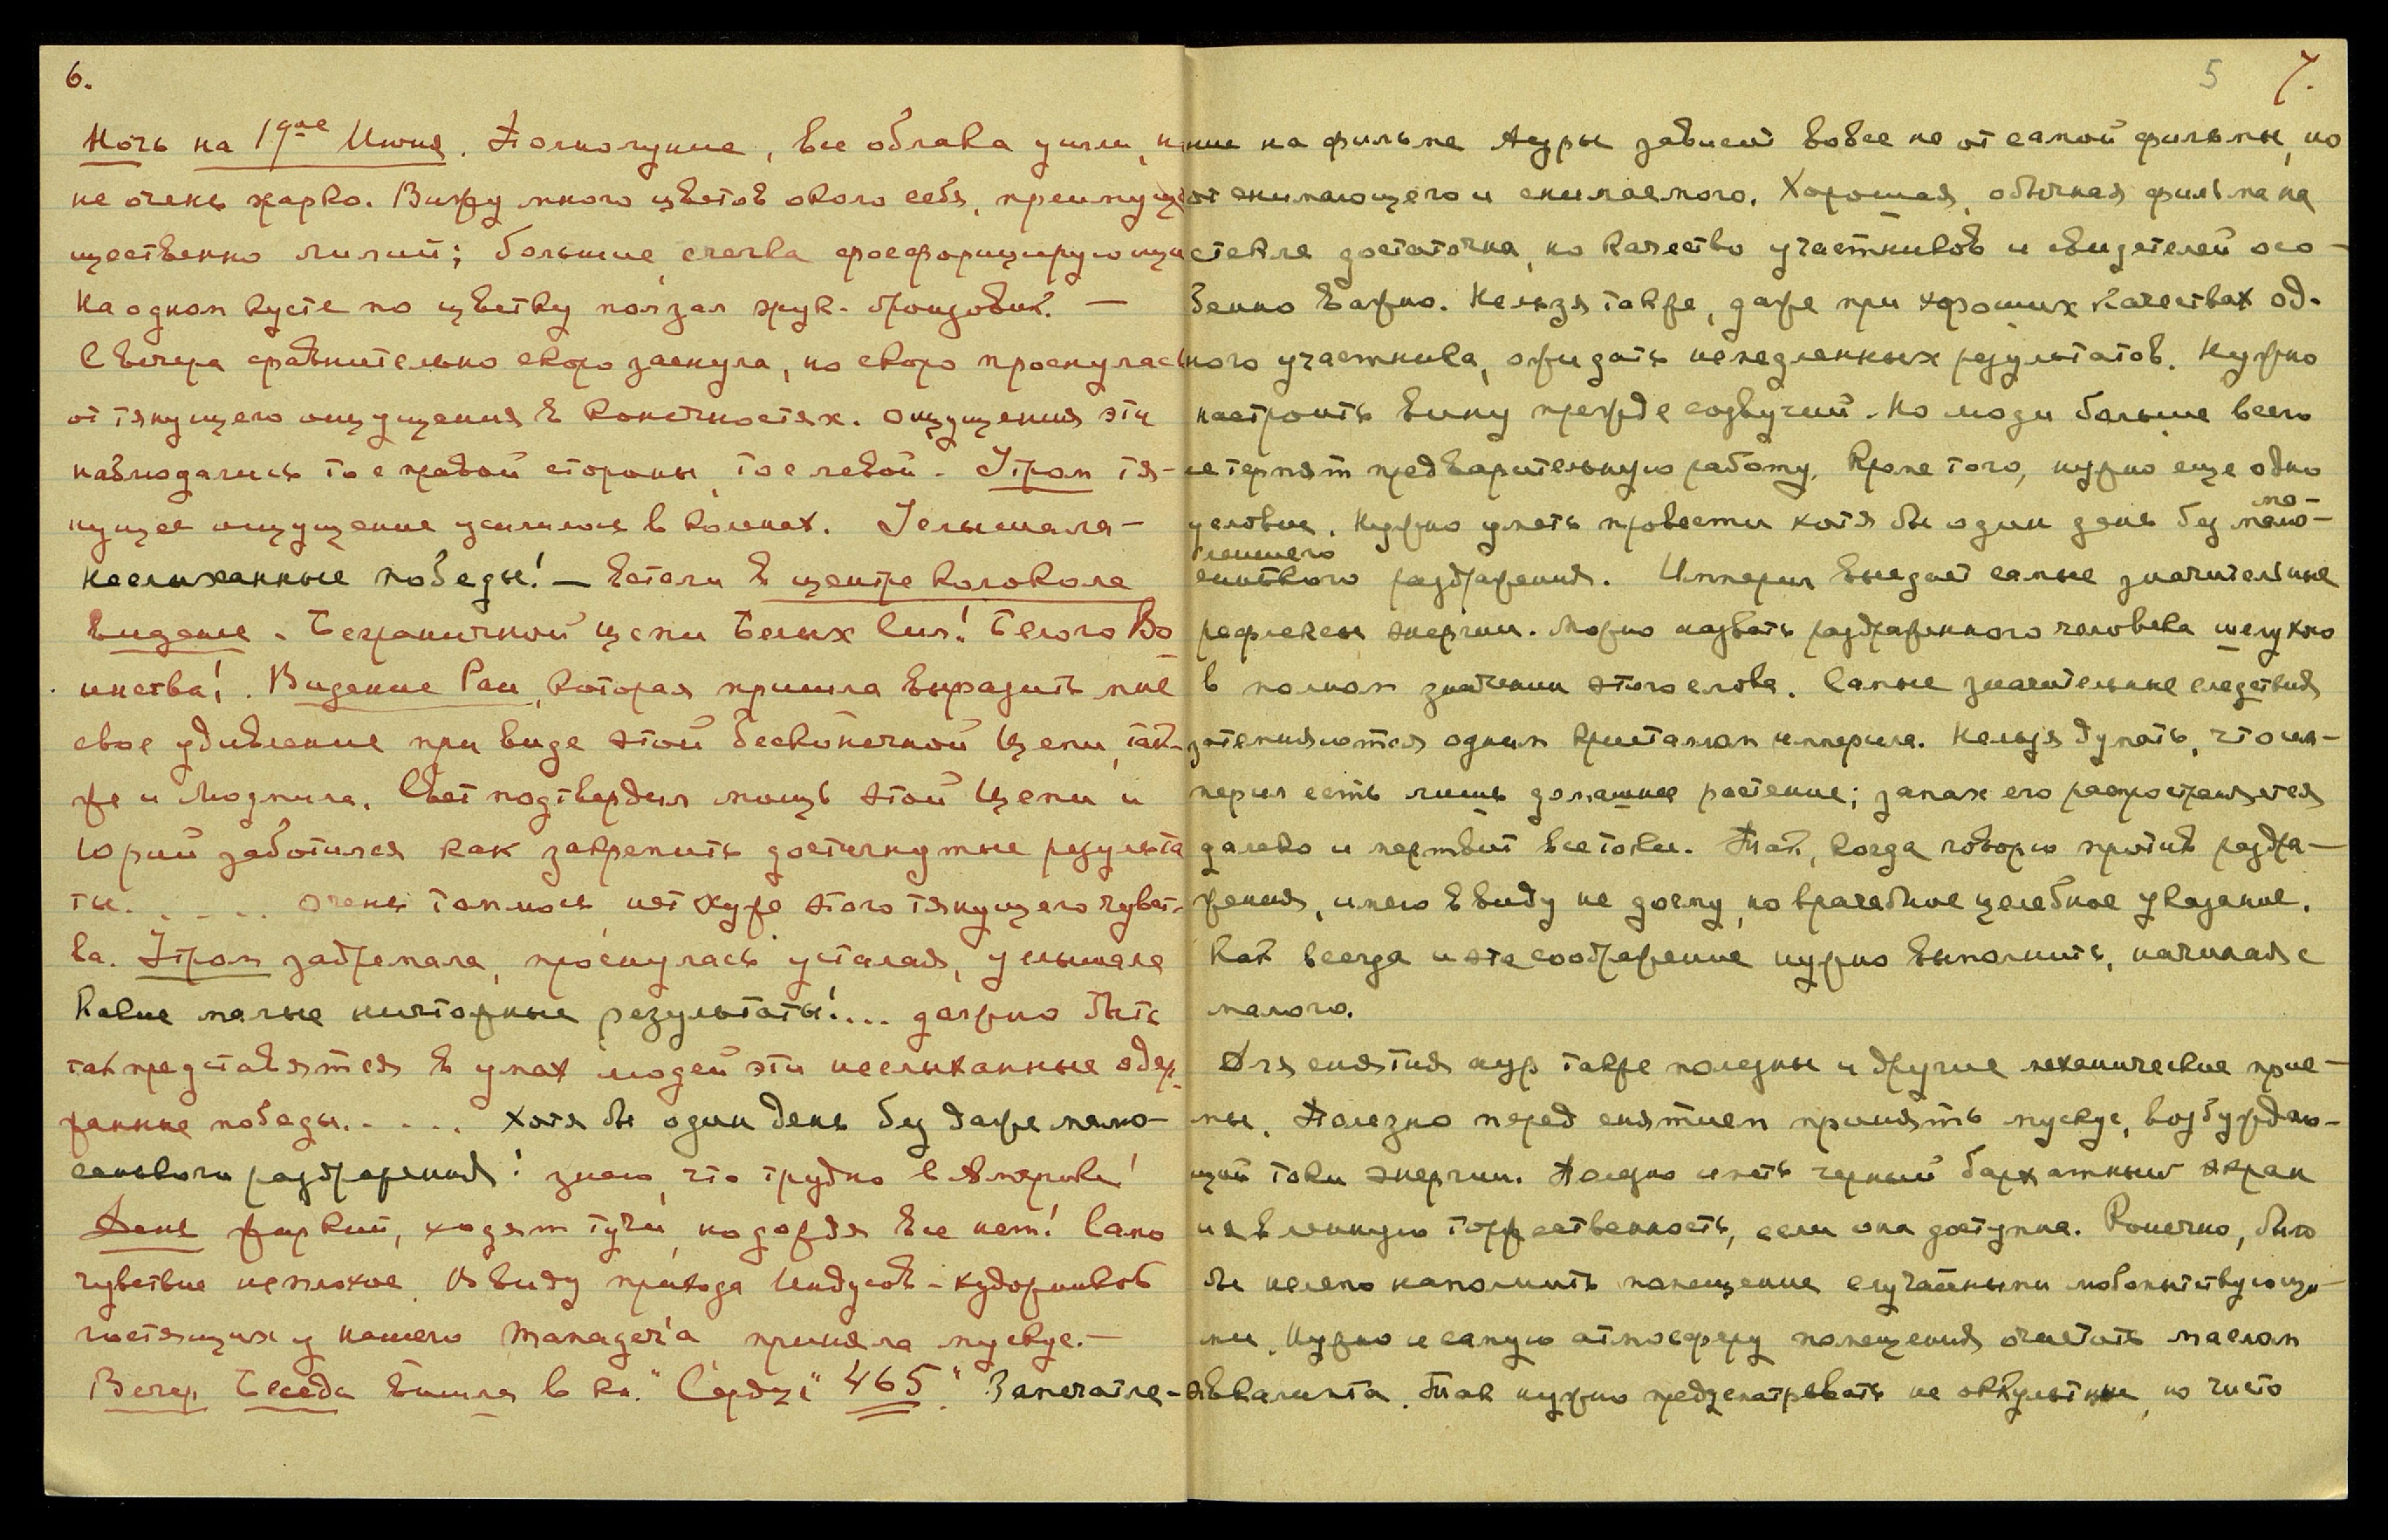 6.
Ночь на 19ое Июня. Полнолуние, все облака ушли, и
не очень жарко. Вижу много цветов около себя, преимущ
щественно лилий; большие, слегка фосфорицирующи
На одном кусте по цветку ползал жук-бронзовик. —
С вечера сравнительно скоро заснула, но скоро проснулась
от тянущего ощущения в конечностях. Ощущения эти
наблюдались то с правой стороны, то с левой. Утром тя-
нущее ощущение усилилось в коленах. Услышала —
неслыханные победы! — встали в центре колокола
Видение. Безграничной цепи Белых Сил! Белого Во
инства! Видение Раи, которая пришла выразить мне
свое удивление при виде этой бесконечной Цепи, так-
же и Людмила. Свет подтвердил мощь этой Цепи и
Юрий заботился как закрепить достигнутые результа
ты. . . . . Очень томилась, нет хуже этого тянущего чувст-
ва. Утром задремала, проснулась усталая, услышала
Какие малые ничтожные результаты!... должно быть
так представятся в умах людей эти неслыханные одер-
жанные победы. . . . . Хотя бы один день без даже мало-
сенького раздражения! знаю, что трудно в Америке!
День жаркий, ходят тучи, но дождя все нет! Само
чувствие неплохое. Ввиду прихода Индусов-художников
гостящих у нашего Manager'а приняла мускус. —
Вечер. Беседа вошла в кн. "Сердце" "465". Запечатле-
5 7.
ние на фильме Ауры зависит вовсе не от самой фильмы, но
от снимающего и снимаемого. Хорошая, обычная фильма на
стекле достаточна, но качество участников и свидетелей осо-
бенно важно. Нельзя также, даже при хороших качествах од-
ного участника, ожидать немедленных результатов. Нужно
настроить вину прежде созвучий. Но люди больше всего
не терпят предварительную работу. Кроме того, нужно еще одно
условие. Нужно уметь провести хотя бы один день без мало-
ма-
сенького раздражения. Империл выедает самые значительные
лейшего
рефлексы энергии. Можно назвать раздраженного человека шелухою
в полном значении этого слова. Самые значительные следствия
затемняются одним кристаллом империла. Нельзя думать, что им-
перил есть лишь домашнее растение; запах его распространяется
далеко и мертвит все токи. Так, когда говорю против раздра-
жения, имею в виду не догму, но врачебное целебное указание.
Как всегда и это соображение нужно выполнить, начиная с
малого.
Для снятия аур также полезны и другие механические прие-
мы. Полезно перед снятием принять мускус, возбуждаю-
щий токи энергии. Полезно иметь черный бархатный экран
и явленную торжественность, если она доступна. Конечно, было
бы нелепо наполнить помещение случайными любопытствующи-
ми. Нужно и самую атмосферу помещения очистить маслом
эвкалипта. Так нужно предусматривать не оккультные, но чисто